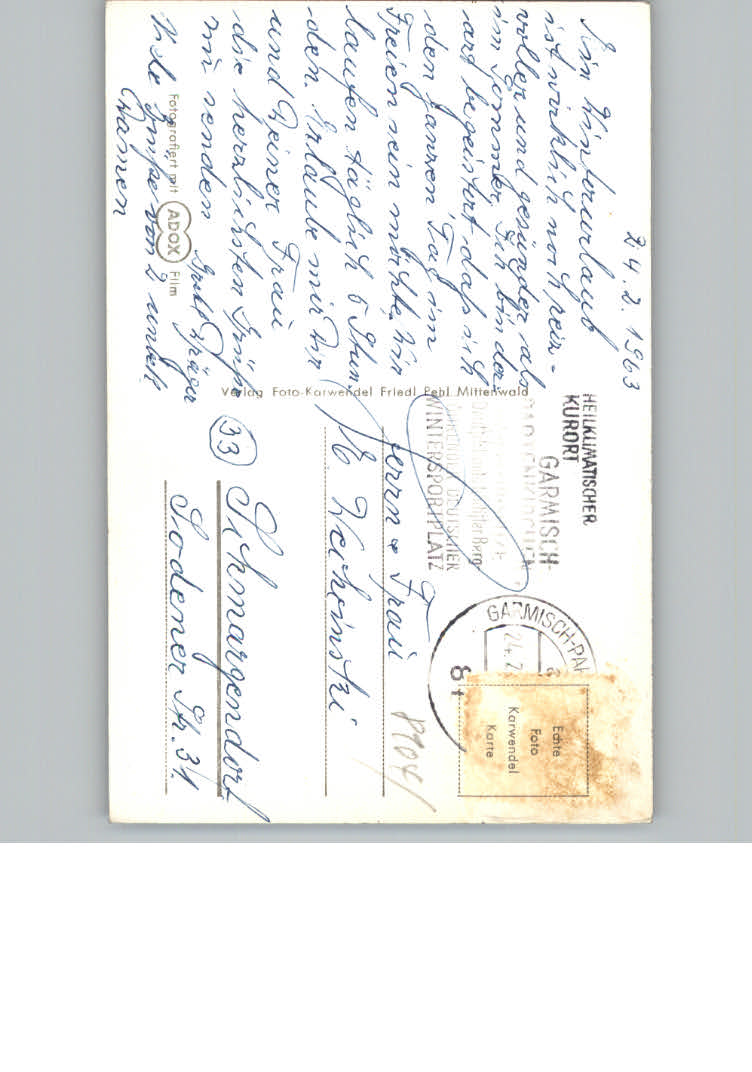 24.2.1963
Ein Winterurlaub
ist wirklich noch reiz-
voller und gesünder als
im Sommer. Ich bin der
art begeistert daß ich
den ganzen Tag im
Freien sein möchte. Wir
laufen täglich 5 Stun
den. Erlaube mir Dir
und Deiner Frau
die herrlichsten Grüße
zu senden
Viele Grüße von 2 unbek
Damen
Fotografiert mit ADOX Film
Verlag Foto-Karwendel Friedl Pehl Mittenwald
HEILKLIMATISCHER
KURORT
GARMISCH-
PARTENKIRCHEN
DEUTSCHER
WINTERSPORTPLATZ
GARMISCH-PA
24.2
Echte
Foto
Karwendel
Karte
8904/
Herrn u Frau
(33) Schmargendorf
Sodener Str. 31